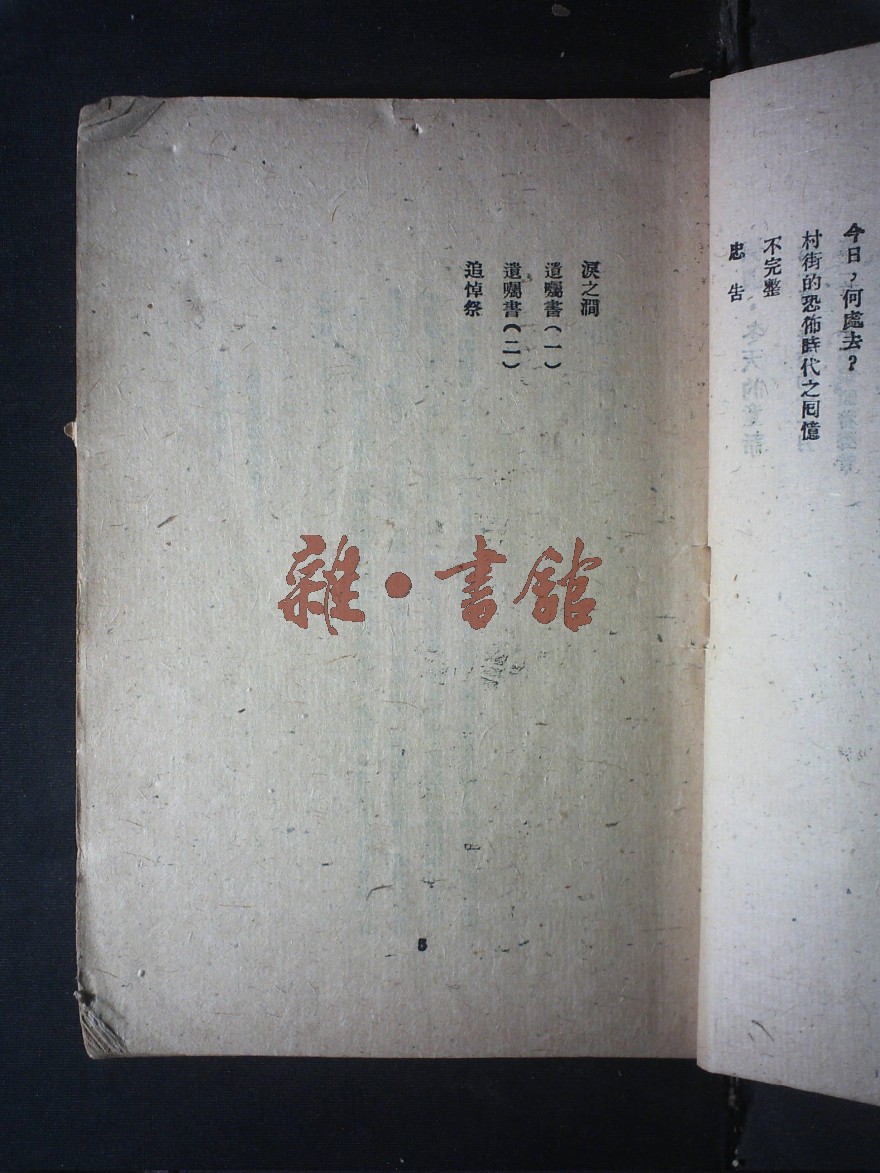 今日，何處去？
村街的恐怖時代之囘憶
不完整
忠告
淚之澗
遺囑書（一）
遺囑書（二）
追悼祭
雜·書館
5